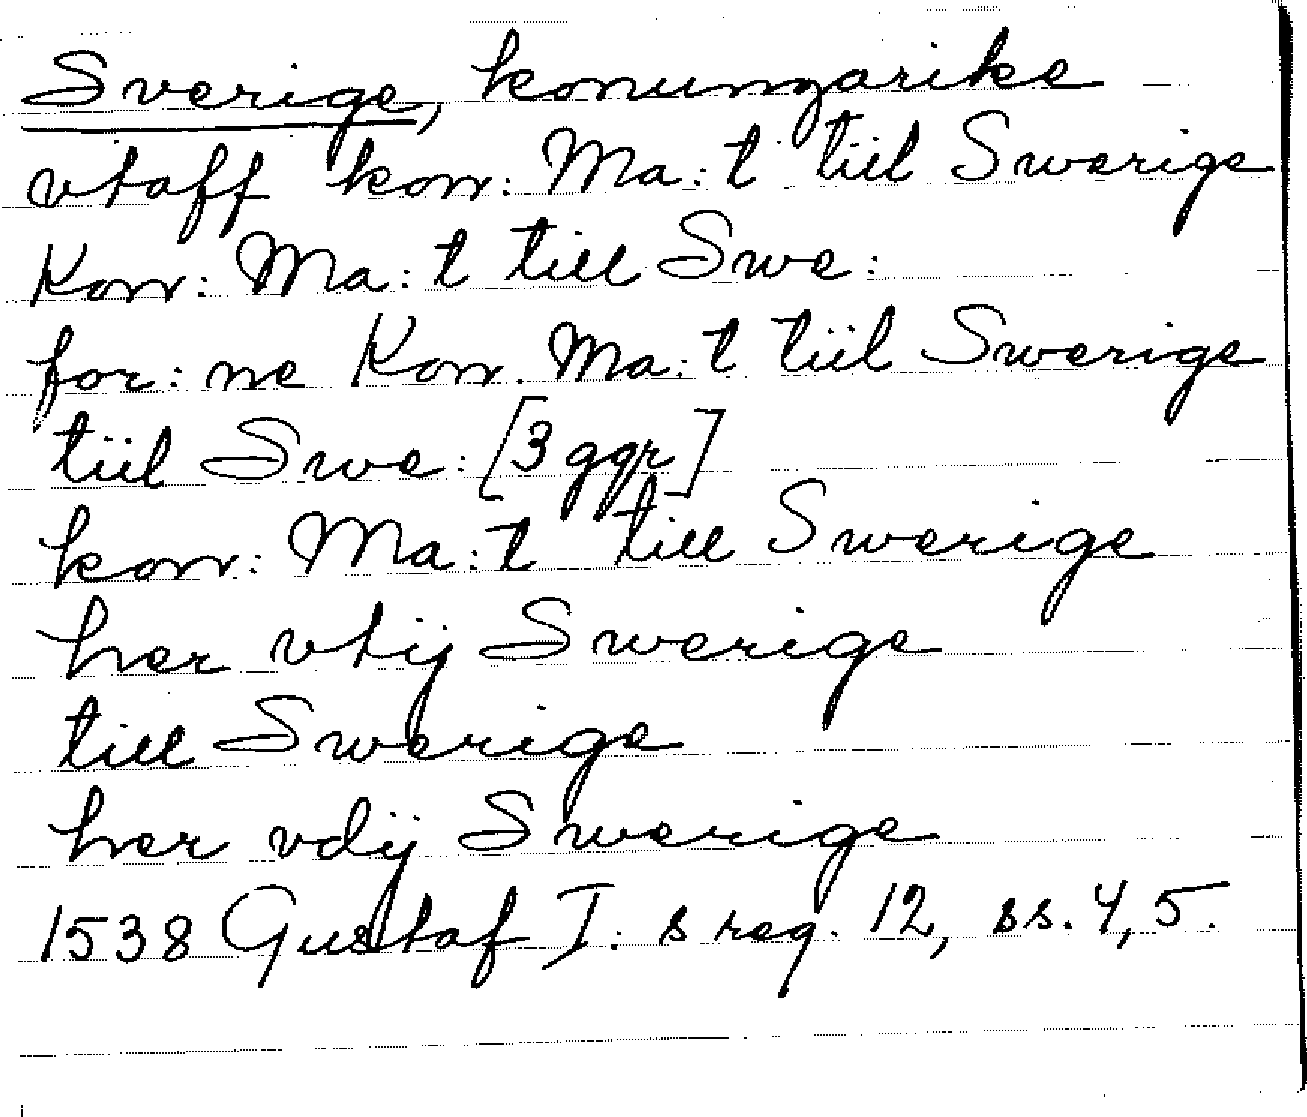 Sverige, konungarike
vtaff kon: Ma:t tiil Swerige
Kon: Ma:t till Swe:
for:ne Kon. Ma:t tiil Swerige
tiil Swe: [3 ggr]
kon: Ma:t till Swerige
her vtij Swerige
till Swerige
her vdij Swerige
1538 Gustaf I:s reg. 12, ss. 4, 5.